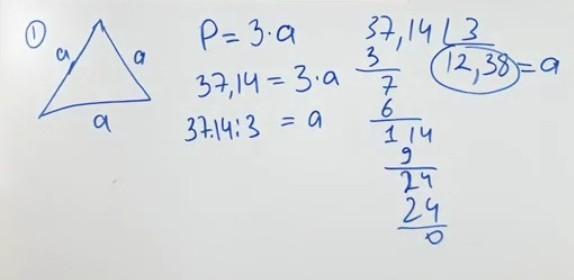 1
a
a
a
P = 3·a
37,14 = 3·a
37.14:3 = a
37,14 | 3
12,38 = a
3
7
6
1 14
9
24
24
0